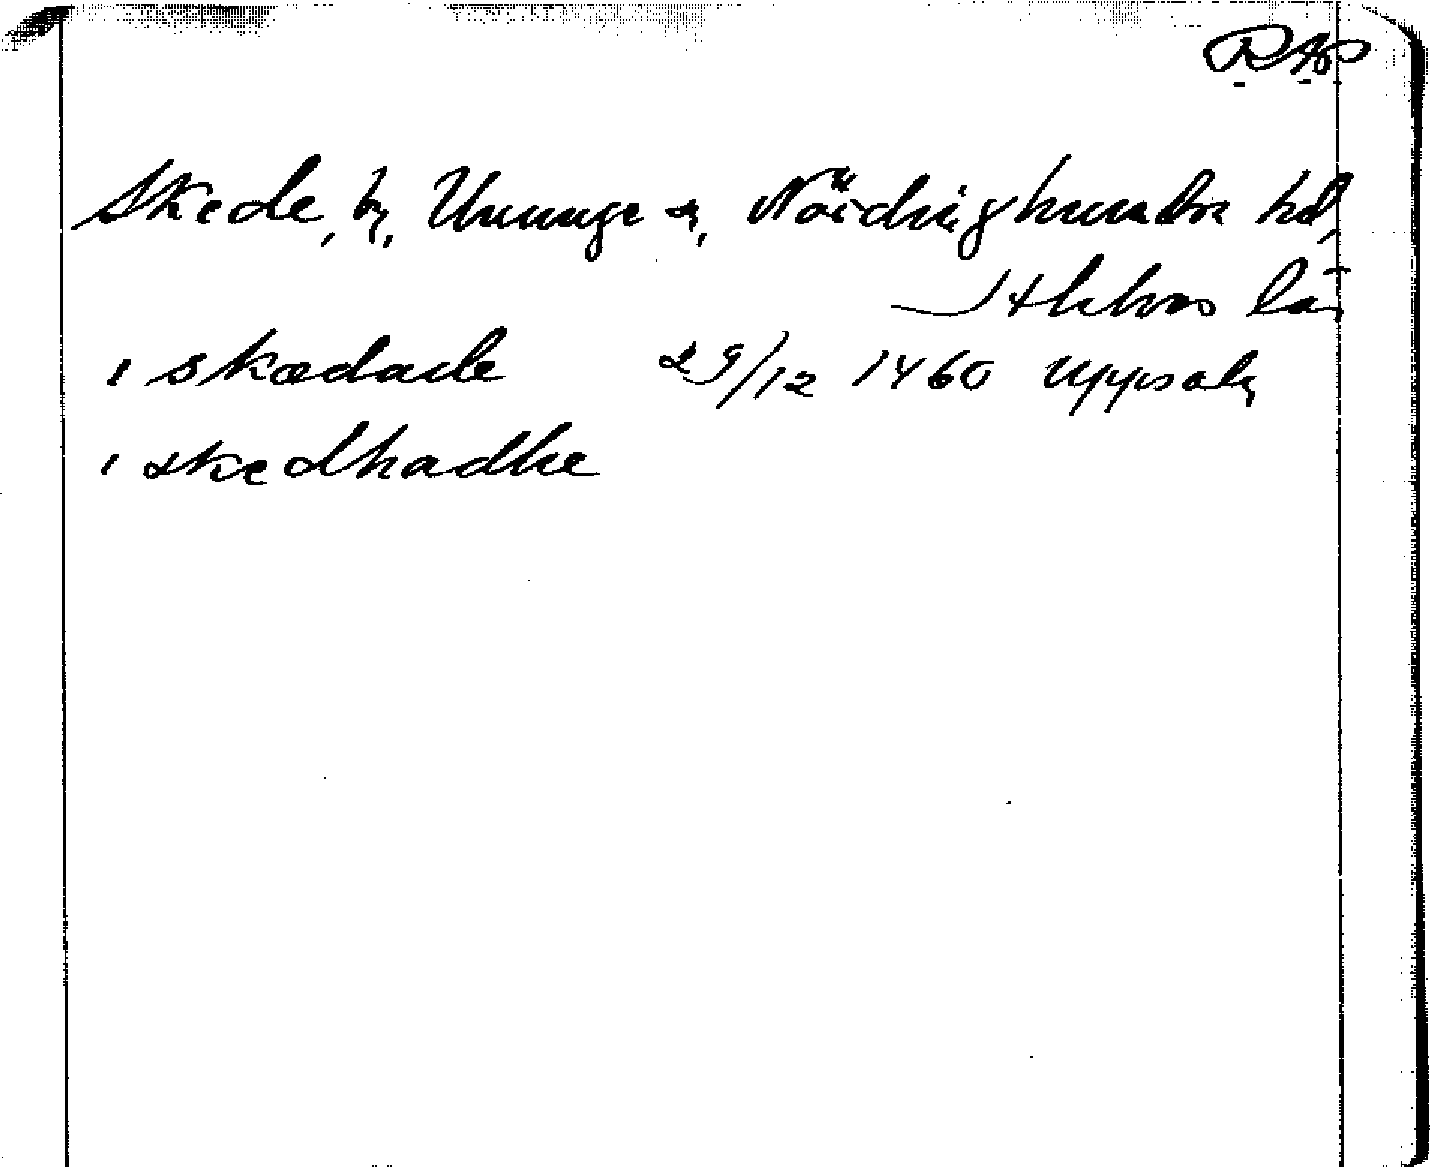 RAp
Skede, by, Ununge sn, Närdinghundra hd,
Sthlms län
i skædade 29/12 1460 Uppsala
i skedhadhe